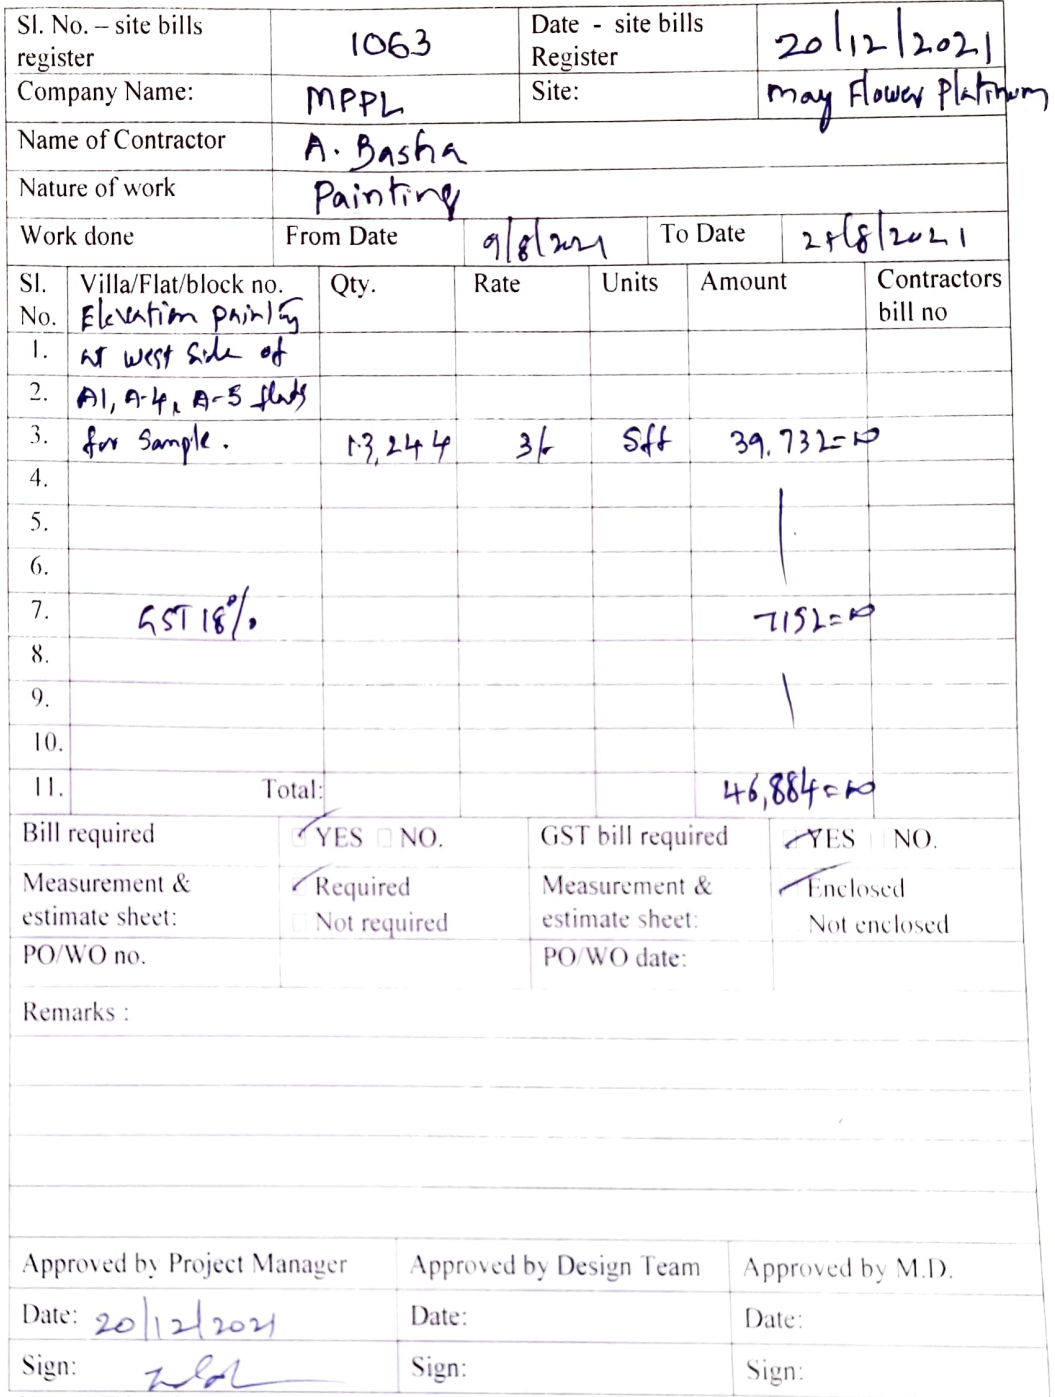 Sl. No. – site bills register 1063 Date - site bills Register 20/12/2021
Company Name: MPPL Site: May Flower Platinum
Name of Contractor A. Basha
Nature of work Painting
Work done From Date 9/8/2021 To Date 28/8/2021
Sl. No. Villa/Flat/block no. Qty. Rate Units Amount Contractors bill no
Elevation painting
1. at west side of
2. A1, A-4, A-5 flats
3. for Sample. 13,244 3/- Sft 39,732=00
4.
5.
6.
7. GST 18% 7152=00
8.
9.
10.
11. Total: 46,884=00
Bill required YES NO. GST bill required YES NO.
Measurement & estimate sheet: Required Not required Measurement & estimate sheet: Enclosed Not enclosed
PO/WO no. PO/WO date:
Remarks :
Approved by Project Manager Approved by Design Team Approved by M.D.
Date: 20/12/2021 Date: Date:
Sign: Sign: Sign: